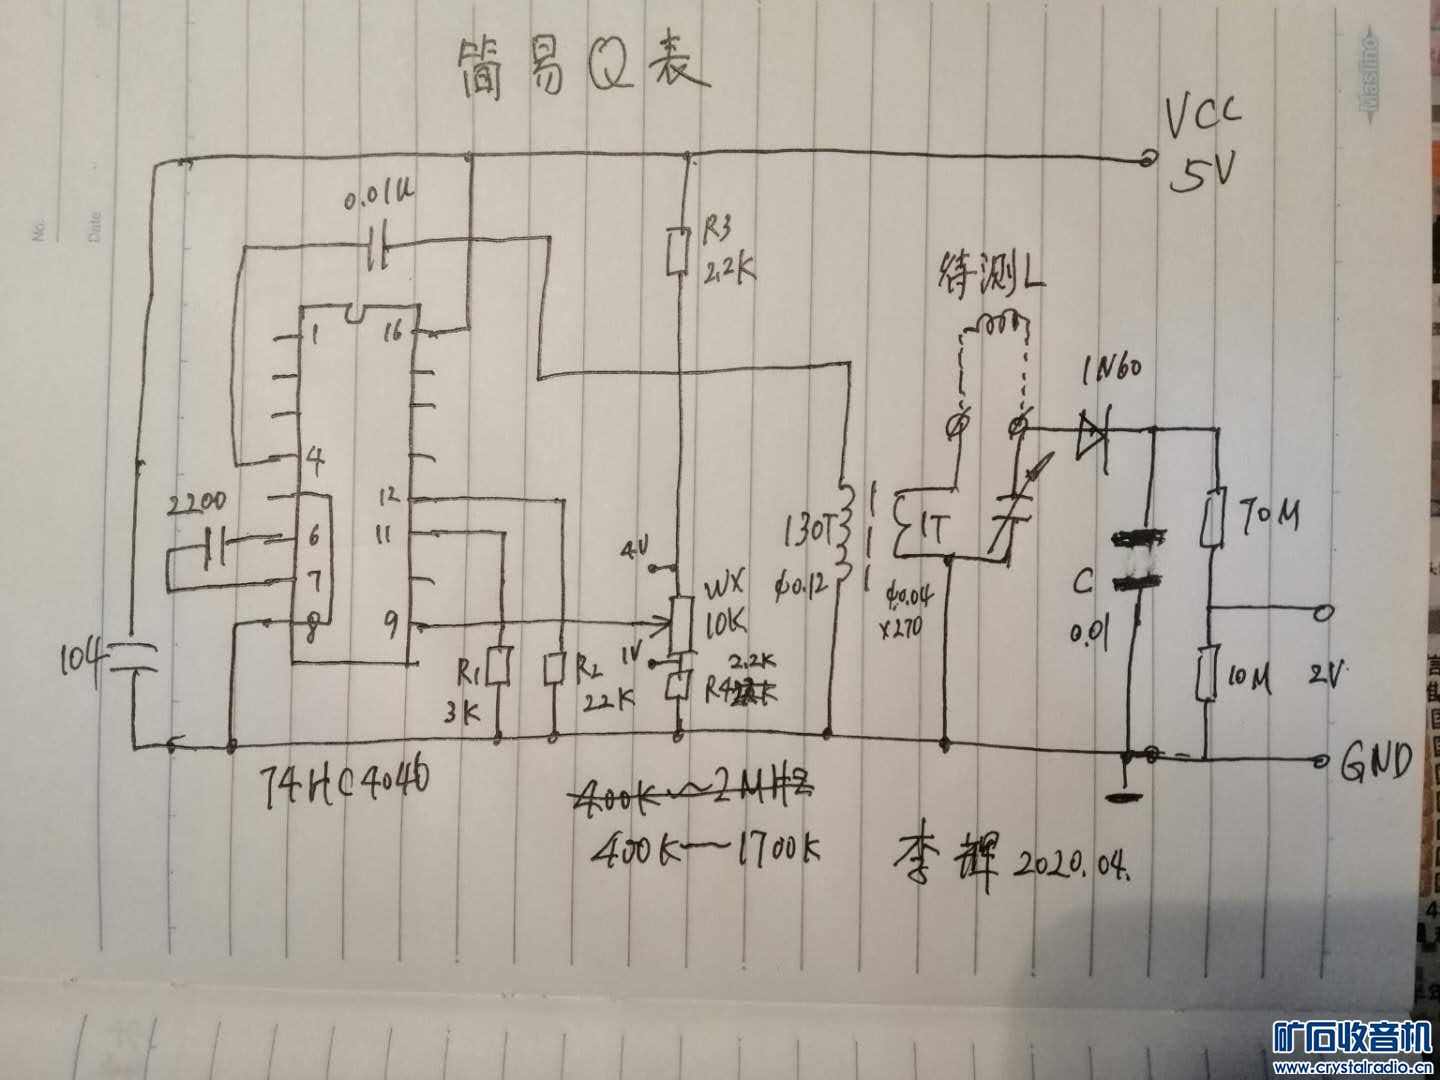 Maslimo
No.
Date
简易Q表
VCC
5V
0.01u
R3
2.2K
待测L
1N60
1
16
4
12
2200
6
11
7
8
9
4V
WX
10K
1V
2.2K
R4
130T
φ0.12
1T
φ0.04
×270
C
0.01
70M
10M
2V
104
R1
3K
R2
22K
GND
74HC4046
400K~2MHZ
400K—1700K
李辉 2020.04.
矿石收音机
www.crystalradio.cn